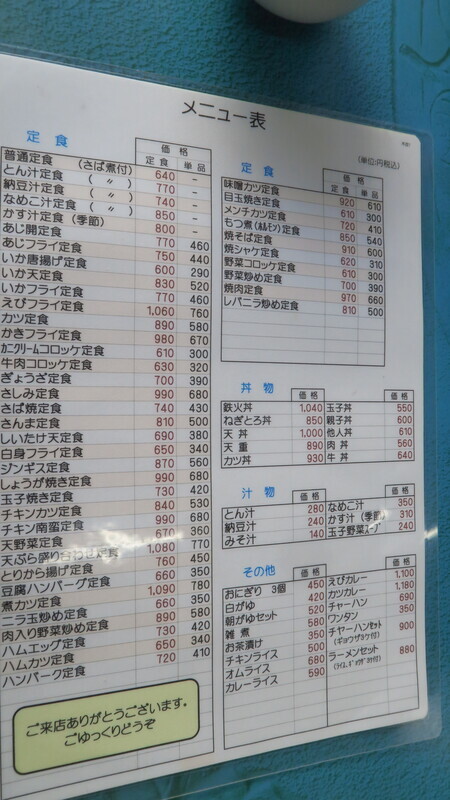 メニュー表
(単位:円税込)
定食 価格
定食 単品
普通定食 (さば煮付) 640 -
とん汁定食 (〃) 770 -
納豆汁定食 (〃) 740 -
なめこ汁定食 (〃) 850 -
かす汁定食(季節) 800 -
あじ開定食 770 460
あじフライ定食 750 440
いか唐揚げ定食 600 290
いか天定食 830 520
いかフライ定食 770 460
えびフライ定食 1,060 760
カツ定食 890 580
かきフライ定食 980 670
カニクリームコロッケ定食 610 300
牛肉コロッケ定食 630 320
ぎょうざ定食 700 390
さしみ定食 990 680
さば焼定食 740 430
さんま定食 810 500
しいたけ天定食 690 380
白身フライ定食 650 340
ジンギス定食 870 560
しょうが焼き定食 990 680
玉子焼き定食 730 420
チキンカツ定食 840 530
チキン南蛮定食 990 680
天野菜定食 670 360
天ぷら盛り合わせ定食 1,080 770
とりから揚げ定食 760 450
豆腐ハンバーグ定食 660 350
煮カツ定食 1,090 780
ニラ玉炒め定食 660 350
肉入り野菜炒め定食 890 580
ハムエッグ定食 730 420
ハムカツ定食 650 340
ハンバーグ定食 720 410
ご来店ありがとうございます。
ごゆっくりどうぞ
定食 価格
定食 単品
味噌カツ定食 920 610
目玉焼き定食 610 300
メンチカツ定食 720 410
もつ煮(ホルモン)定食 850 540
焼そば定食 910 600
焼シャケ定食 620 310
野菜コロッケ定食 610 300
野菜炒め定食 700 390
焼肉定食 970 660
レバニラ炒め定食 810 500
丼物 価格 価格
鉄火丼 1,040 玉子丼 550
ねぎとろ丼 850 親子丼 600
天丼 1,000 他人丼 610
天重 890 肉丼 560
カツ丼 930 牛丼 640
汁物 価格 価格
とん汁 280 なめこ汁 350
納豆汁 240 かす汁(季節) 310
みそ汁 140 玉子野菜スープ 240
その他 価格 価格
おにぎり 3個 450 えびカレー 1,100
白がゆ 420 カツカレー 1,180
朝がゆセット 520 チャーハン 690
雑煮 580 ワンタン 350
お茶漬け 350 チャーハンセット 900
(ギョウザ付)
チキンライス 500 ラーメンセット 880
オムライス 680
カレーライス 590